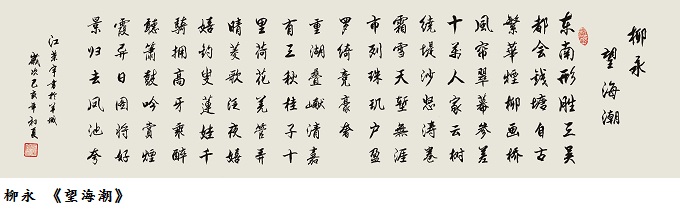 柳永
望海潮
东南形胜三吴
都会钱塘自古
繁華煙柳画桥
風帘翠幕参差
十万人家云树
绕堤沙怒涛卷
霜雪天堑無涯
市列珠玑户盈
罗绮竞豪奢
重湖叠巘清嘉
有三秋桂子十
里荷花羌管弄
晴菱歌泛夜嬉
嬉钓叟莲娃千
骑拥高牙乘醉
聽箫鼓吟赏煙
霞异日图将好
景归去凤池夸
歲次己亥年初夏
柳永 《望海潮》